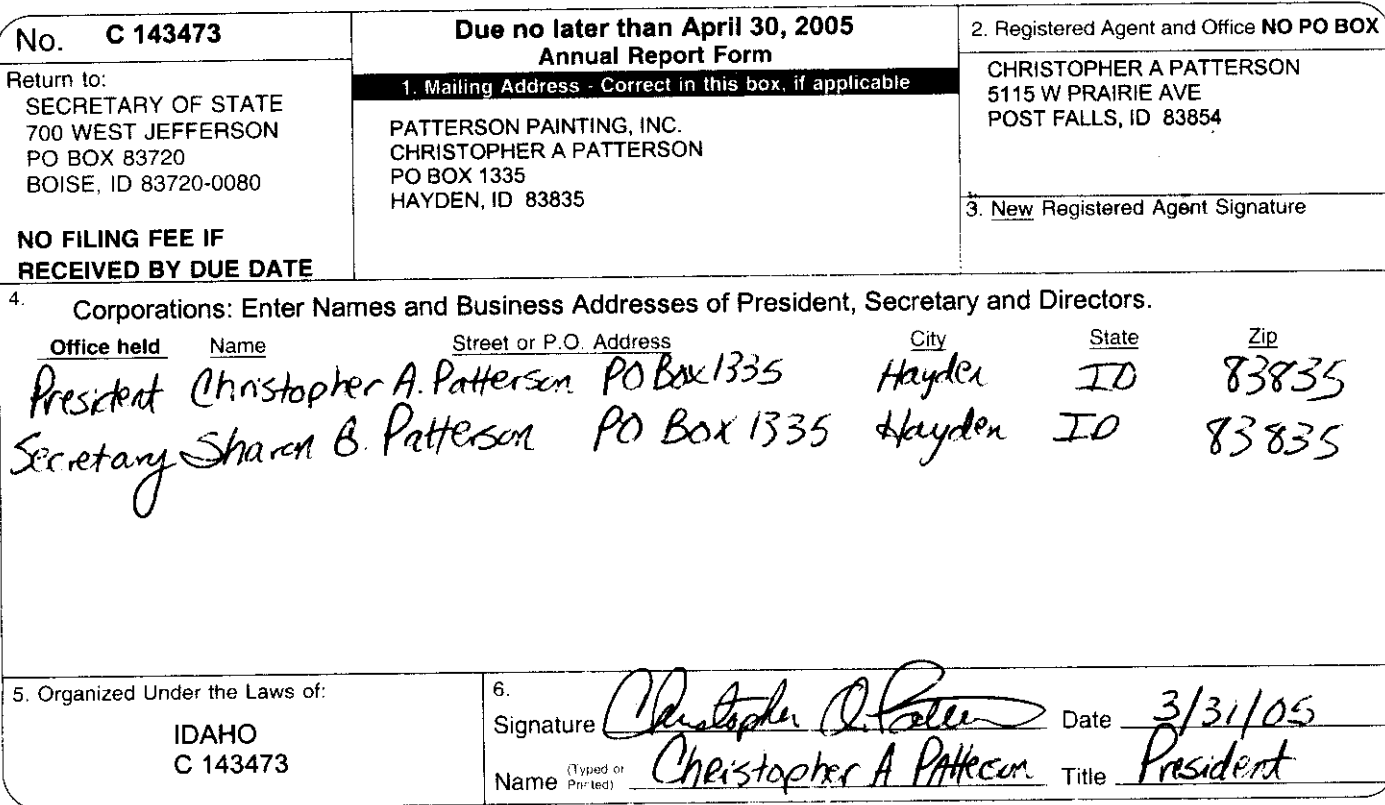 No. C 143473
Return to:
SECRETARY OF STATE
700 WEST JEFFERSON
PO BOX 83720
BOISE, ID 83720-0080
NO FILING FEE IF
RECEIVED BY DUE DATE
Due no later than April 30, 2005
Annual Report Form
1. Mailing Address - Correct in this box, if applicable
PATTERSON PAINTING, INC.
CHRISTOPHER A PATTERSON
PO BOX 1335
HAYDEN, ID 83835
2. Registered Agent and Office NO PO BOX
CHRISTOPHER A PATTERSON
5115 W PRAIRIE AVE
POST FALLS, ID 83854
3. New Registered Agent Signature
4. Corporations: Enter Names and Business Addresses of President, Secretary and Directors.
Office held Name Street or P.O. Address City State Zip
President Christopher A. Patterson PO Box 1335 Hayden ID 83835
Secretary Sharon B. Patterson PO Box 1335 Hayden ID 83835
5. Organized Under the Laws of:
IDAHO
C 143473
6.
Signature Christopher A. Patterson Date 3/31/05
Name (Typed or Printed) Christopher A Patterson Title President